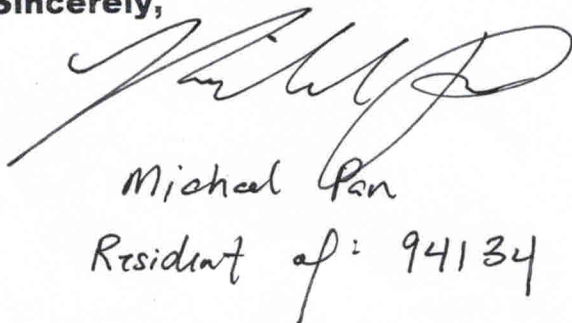 Sincerely,
Michael Pan
Resident of: 94134